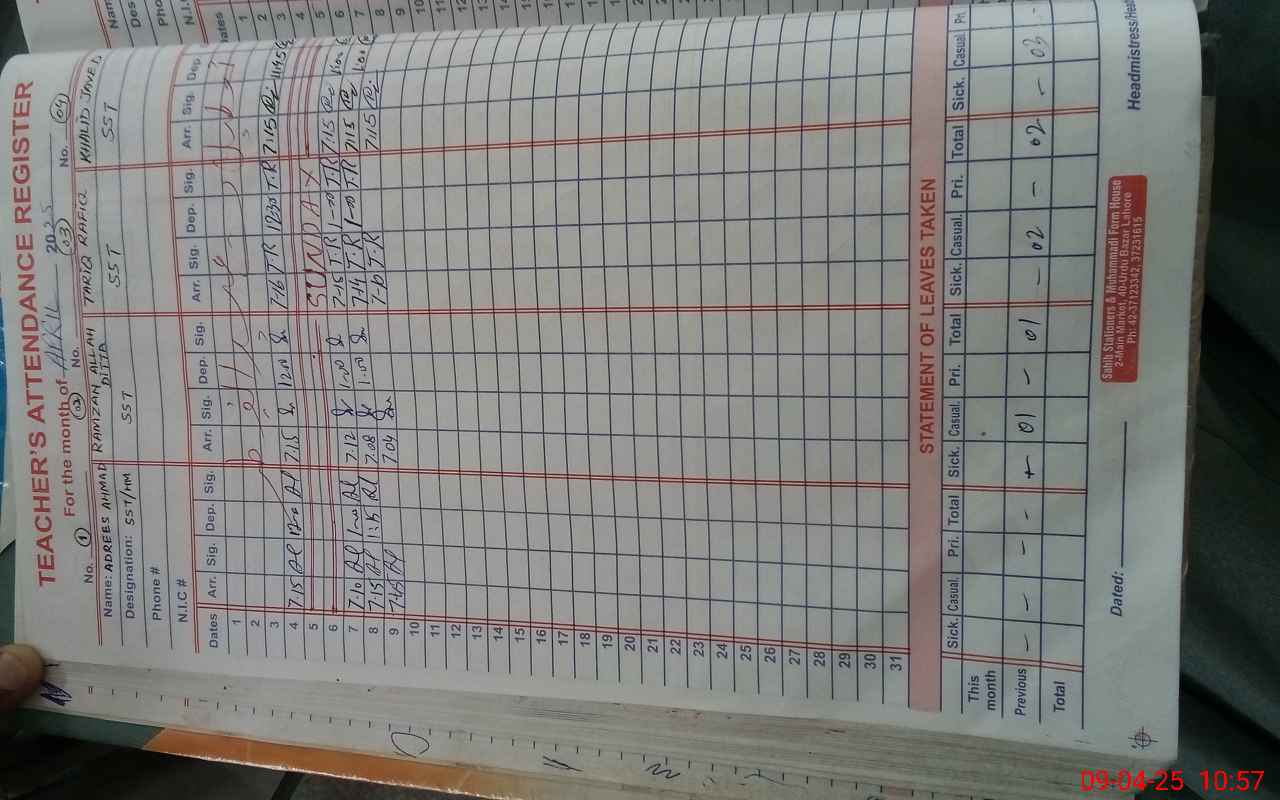 TEACHER'S ATTENDANCE REGISTER
For the month of APRIL 2025
No. 1 No. 02 No. 03 No. 04
Name: ADREES AHMAD RAMZAN ALLAH DITTA TARIQ RAFIQ KHALID JAVED
Designation: SST/HM SST SST SST
Phone #
N.I.C #
Dates Arr. Sig. Dep. Sig. Arr. Sig. Dep. Sig. Arr. Sig. Dep. Sig. Arr. Sig. Dep
1
2
3
4 7.15 1200 7.15 1200 7-16 T.R 12:30 T.R 7:15 11:45
5
6 SUNDAY
7 7.10 1-00 7.12 1.00 7-15 T.R 1-00 T.R 7:15 1:00
8 7.15 1:15 7.08 1.00 7-14 T.R 1-00 T.R 7:15 1:00
9 7.15 7.04 7-10 T.R 7:15
10
11
12
13
14
15
16
17
18
19
20
21
22
23
24
25
26
27
28
29
30
31
STATEMENT OF LEAVES TAKEN
Sick. Casual. Pri. Total Sick. Casual. Pri. Total Sick. Casual. Pri. Total Sick. Casual Pri
This month
Previous - - - - - 01 - 01 - 02 - 02 - 03 -
Total
Dated:
Headmistress/Hea
Sahib Stationers & Muhammadi Form House
2-Main Market, 40-Urdu Bazar Lahore
Ph: 42-37123342, 37231615
09-04-25 10:57